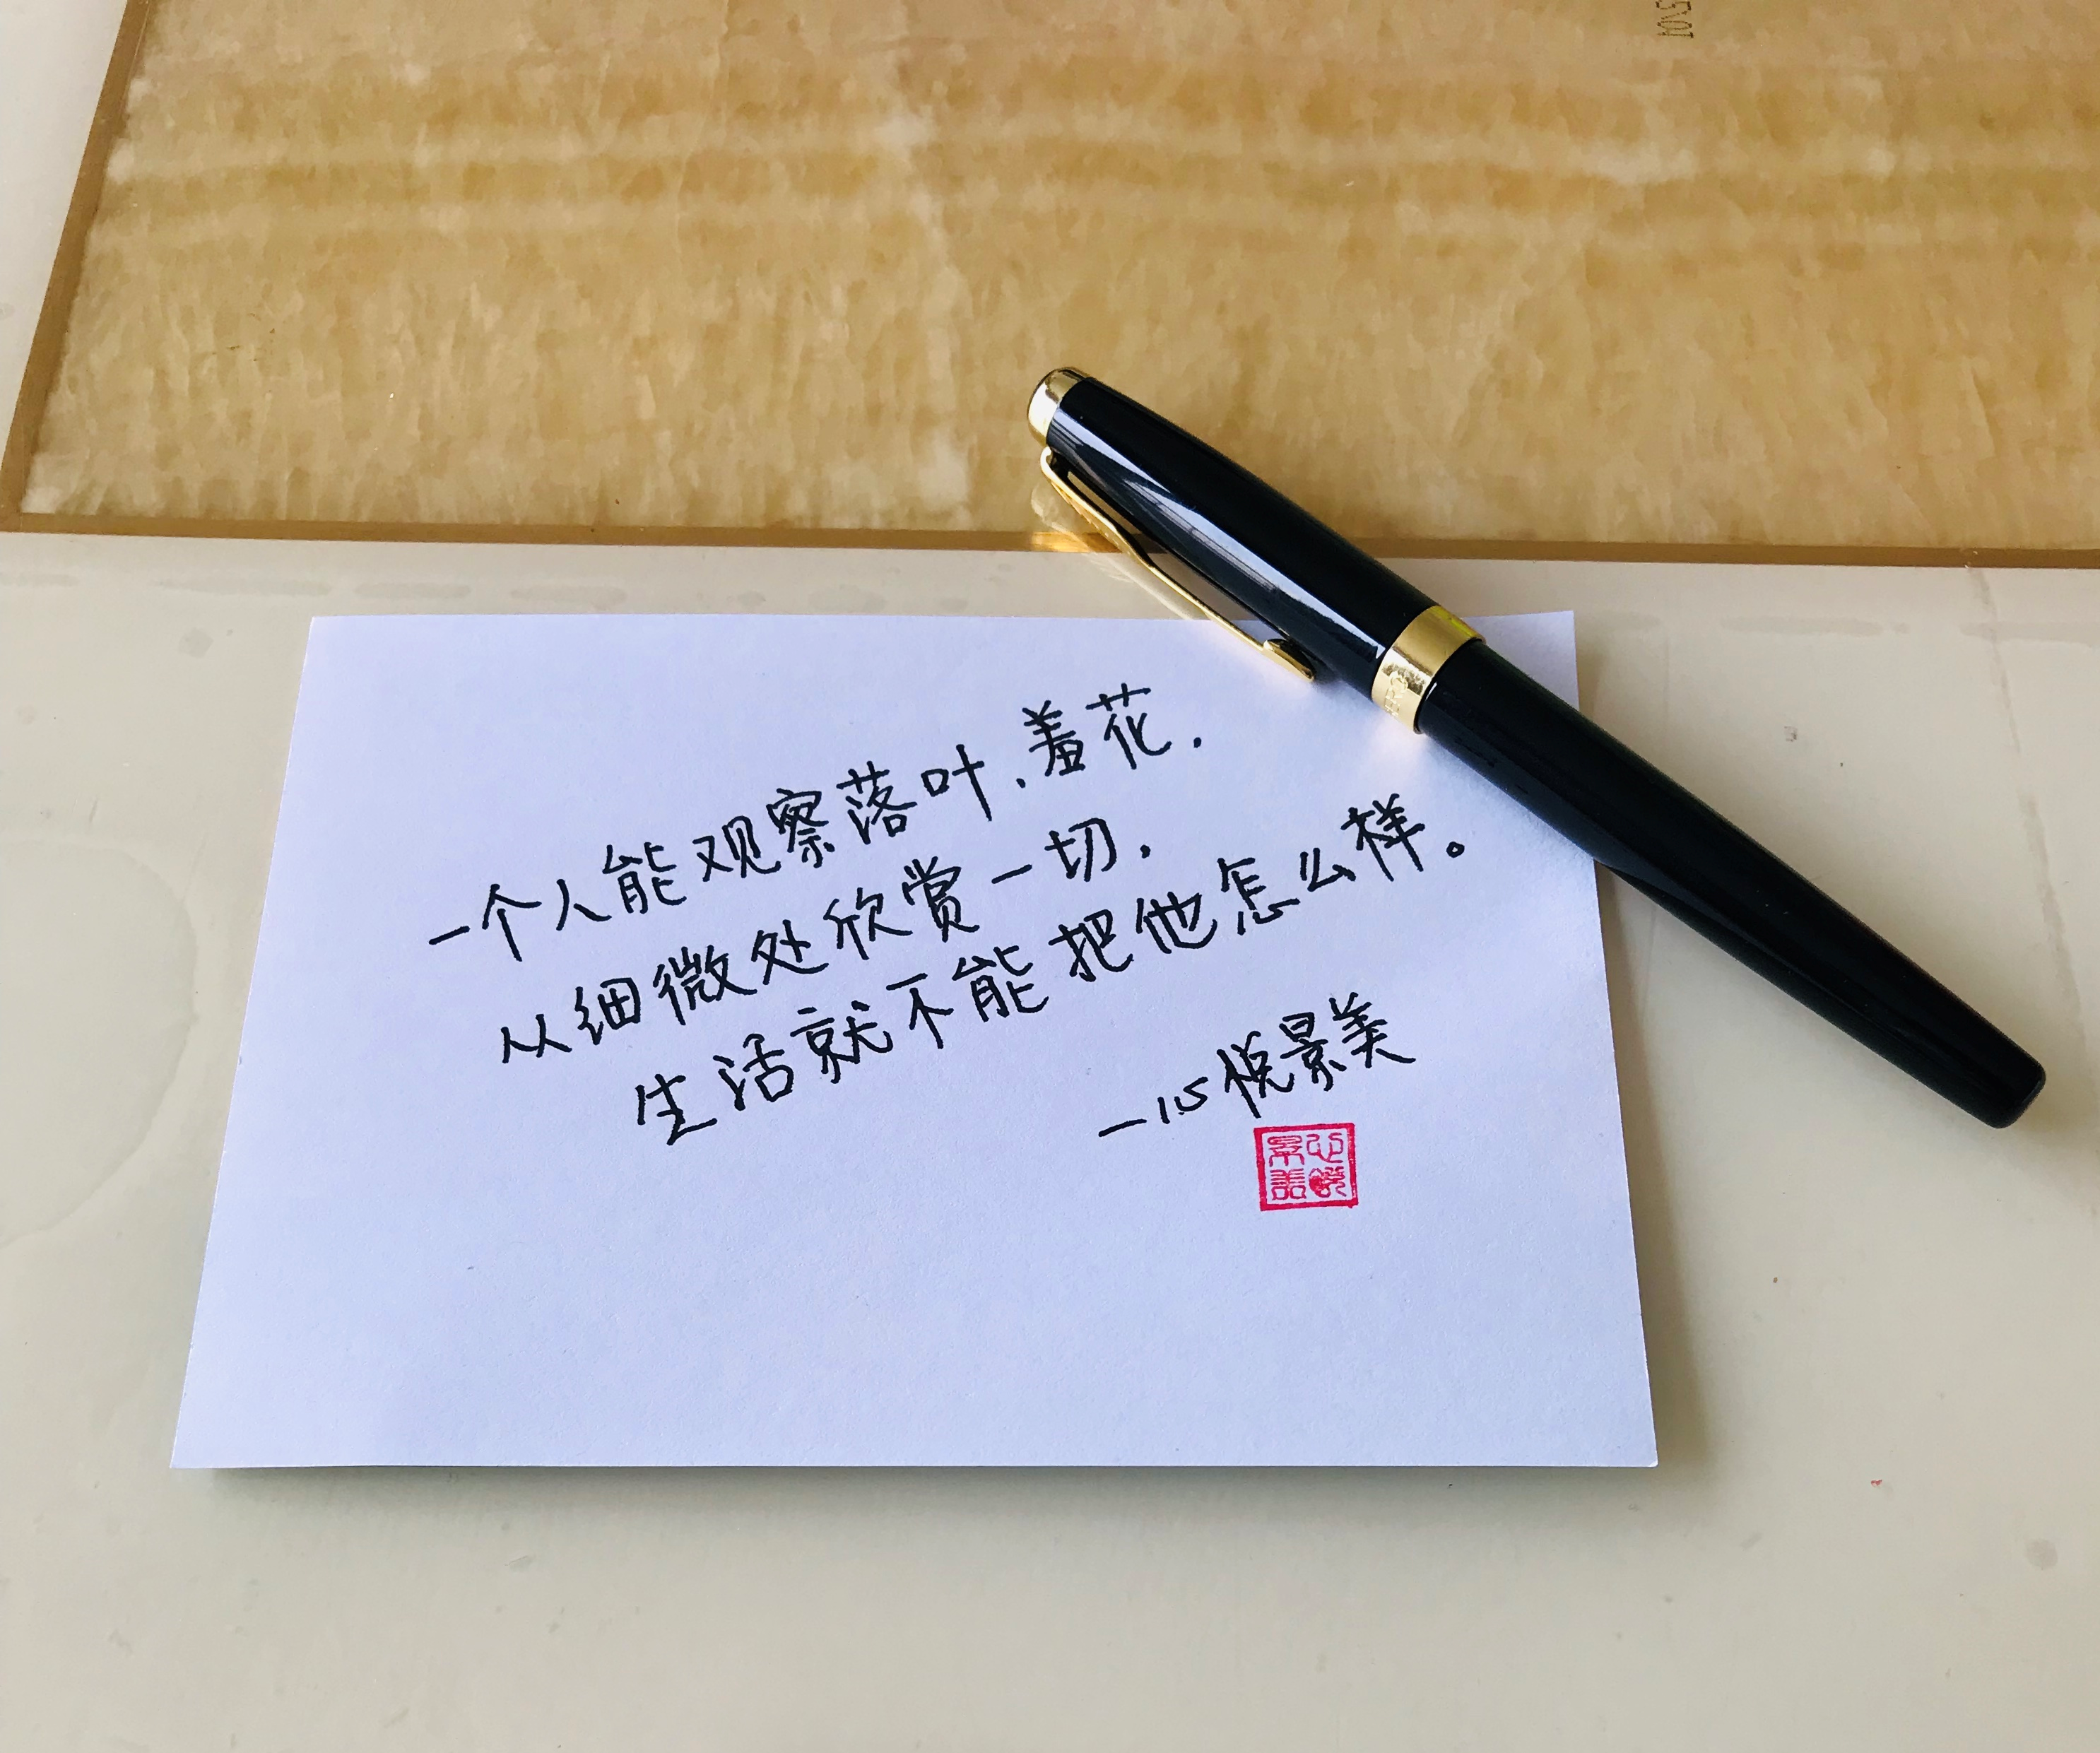 一个人能观察落叶.羞花.
从细微处欣赏一切.
生活就不能把他怎么样。
—心悦景美
心悦景美